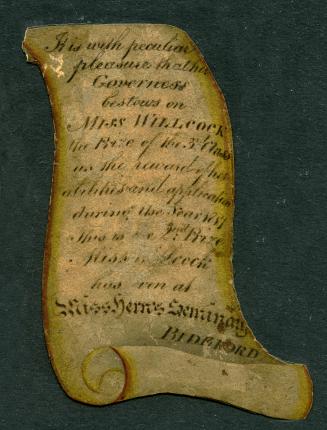 It is with peculiar
pleasure that her
Governess
bestows on
MISS WILLCOCK
the Prize of the 3d Class
as the reward of her
abilities and application
during the Year
this is the 2nd Prize
Miss Willcock
has won at
Miss Hern's Seminary
BIDEFORD